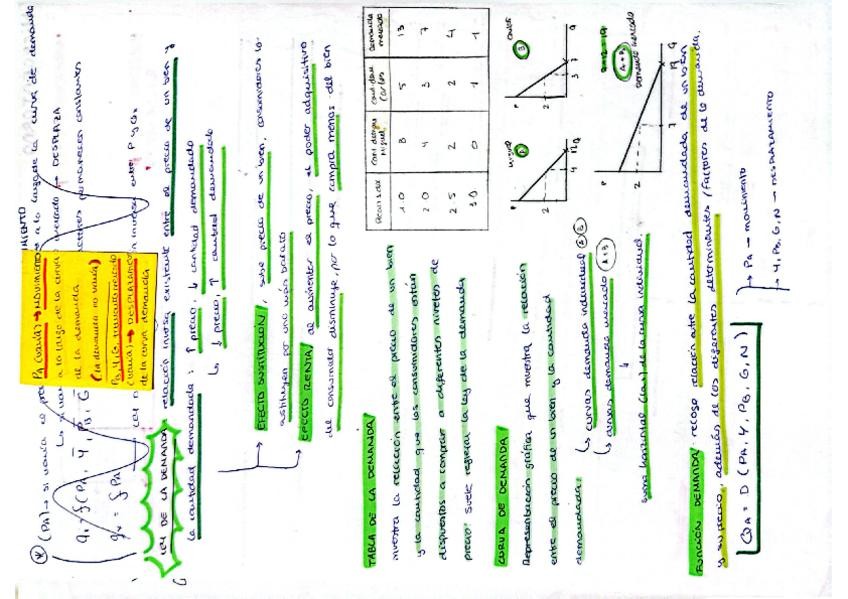 (PA) → si varía el
a lo largo de la curva de demanda
↳ si varía
a lo largo de la curva
mercado → DESPLAZA
de la demanda
permanecen constantes
q₁ = f(PA, Y, PB, G
qx = f PA
PA (varía) → MOVIMIENTO
(la demanda no varía)
PB, Y, G,
(varía) → DESPLAZAMIENTO
de la curva demanda
LEY DE LA DEMANDA: relación inversa existente entre el precio de un bien y
la cantidad demandada: ↑ precio, ↓ cantidad demandada
↳ ↓ precio, ↑ cantidad demandada
EFECTO SUSTITUCIÓN, sube precio de un bien, consumidores lo
sustituyen por uno más barato
EFECTO RENTA, al aumentar el precio, el poder adquisitivo
del consumidor disminuye, por lo que compra menos del bien
TABLA DE LA DEMANDA
muestra la relación entre el precio de un bien
y la cantidad que los consumidores están
dispuestos a comprar a diferentes niveles de
precio. Suele reflejar la ley de la demanda
Miguel
Carlos
demanda mercado
1.0 8 5 13
2.0 4 3 7
2.5 2 2 4
3.0 0 1 1
CURVA DE DEMANDA
Representación gráfica que muestra la relación
entre el precio de un bien y la cantidad
demandada:
↳ curvas demandas individual A B
↳ curvas demandas mercado A+B
↓
suma horizontal (can) de la curva individual.
P
2
4 12 Q
B
P
2
3 7 Q
A+B
Demanda mercado
P
2
7 19 Q
FUNCIÓN DEMANDA: recoge relación entre la cantidad demandada de un bien
y su precio, además de los diferentes determinantes/factores de la demanda.
QA = D (PA, Y, PB, G, N)
→ PA — movimiento
→ Y, PB, G, N — desplazamiento